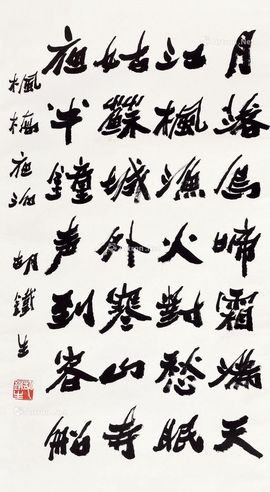 月落烏啼霜滿天
江楓漁火對愁眠
姑蘇城外寒山寺
夜半鐘声到客船
楓橋夜泊 胡鐵生